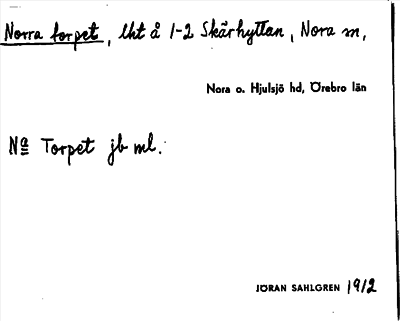 Norra torpet, lht å 1-2 Skärhyttan, Nora sn,
Nora o. Hjulsjö hd, Örebro län
Na Torpet jb ml.
JÖRAN SAHLGREN 1912